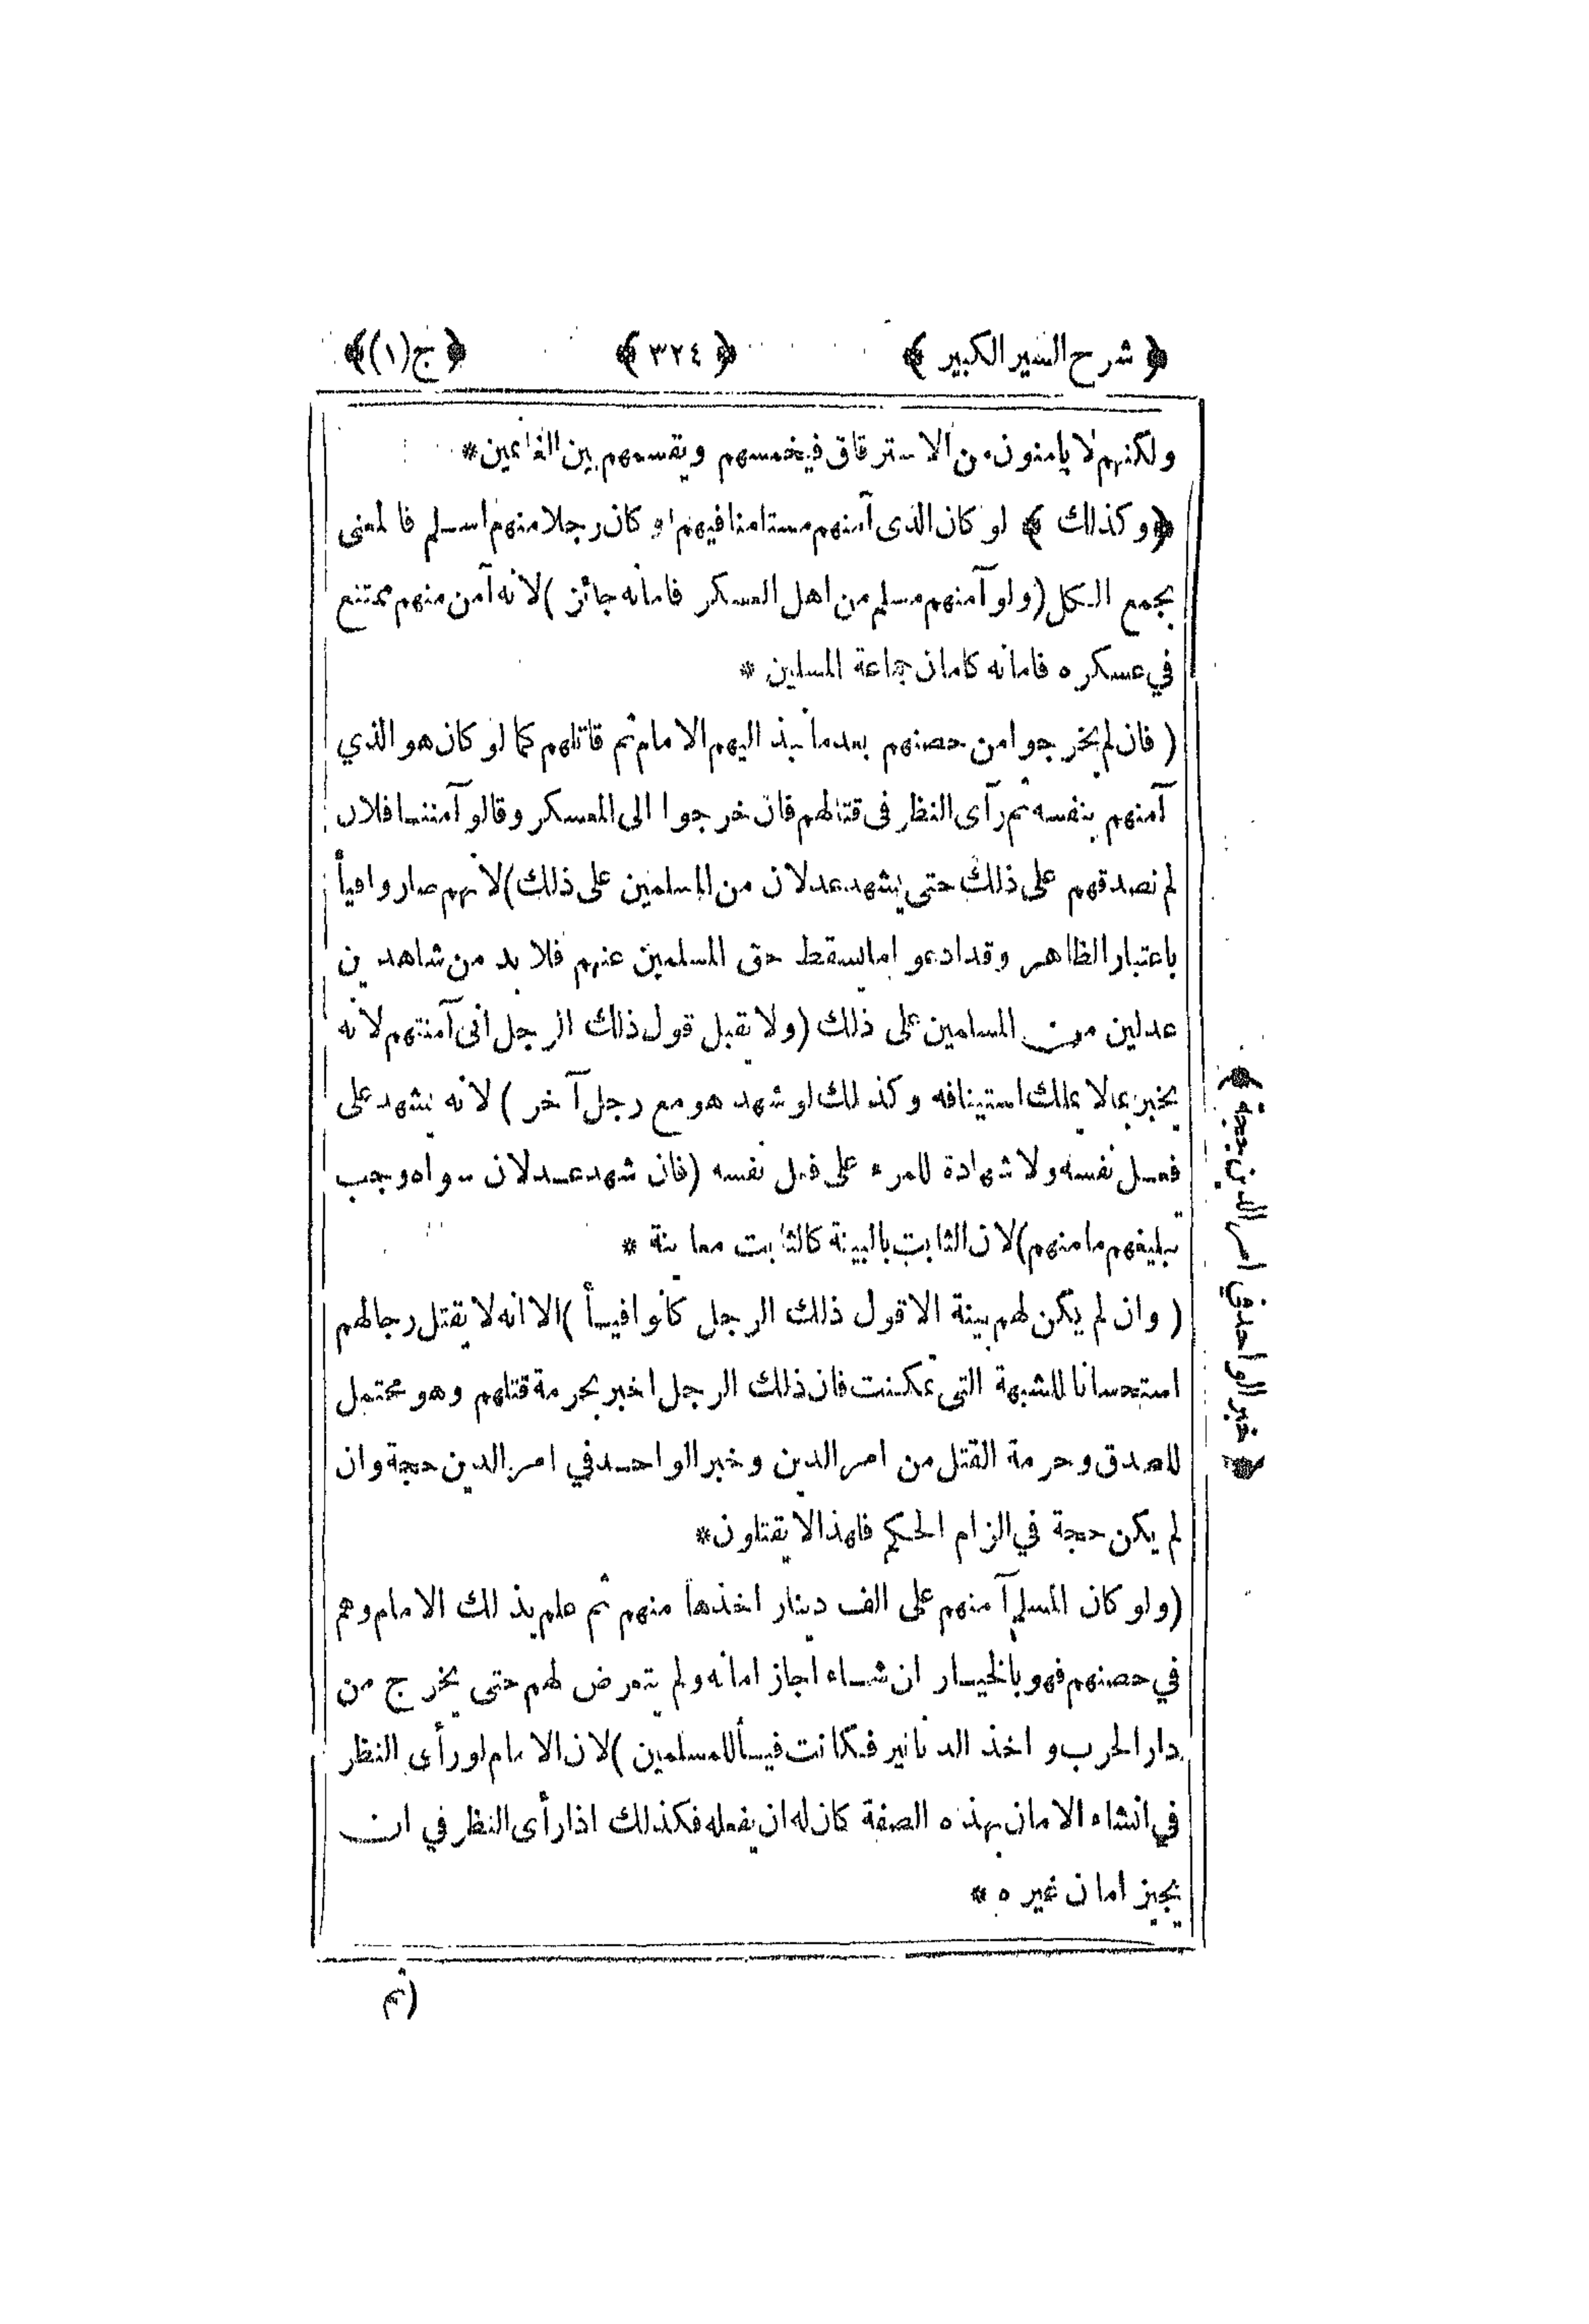 ﴿ شرح السير الكبير ﴾ ﴿ ٣٢٤ ﴾ ﴿ ج (١) ﴾
ولكنهم لا يامنون من الاسترقاق فيخمسهم ويقسمهم بين الغانمين *
﴿ وكذلك ﴾ لو كان الذى آمنهم مستامنا فيهم او كان رجلا منهم اسلم فالمعنى
يجمع الكل (ولو آمنهم مسلم من اهل العسكر فامانه جائز) لانه آمن منهم ممتنع
في عسكره فامانه كامان جماعة المسلمين *
( فان لم يخرجوا من حصنهم بعد ما نبذ اليهم الامام ثم قاتلهم كما لو كان هو الذي
آمنهم بنفسه ثم رآى النظر فى قتالهم فان خرجوا الى المعسكر وقالو آمننا فلان
لم نصدقهم على ذلك حتى يشهد عدلان من المسلمين على ذلك) لانهم صاروا فيأ
باعتبار الظاهر وقد ادعوا ما يسقط حق المسلمين عنهم فلا بد من شاهدين
عدلين من المسلمين على ذلك (ولا تقبل قول ذلك الرجل انى آمنتهم لانه
يخبر بمالا يملك استينافه وكذلك لو شهد هو مع رجل آخر ) لانه يشهد على
فعل نفسه ولا شهادة للمرء على فعل نفسه (فان شهد عدلان سواه وجب
تبليغهم مامنهم) لان الثابت بالبينة كالثابت معاينة *
( وان لم يكن لهم بينة الا قول ذلك الرجل كانوا فيأ ) الا انه لا يقتل رجالهم
استحسانا للشبهة التى تمكنت فان ذلك الرجل اخبر بحرمة قتلهم وهو محتمل
للصدق وحرمة القتل من امر الدين وخبر الواحد في امر الدين حجة وان
لم يكن حجة في الزام الحكم فلهذا لا يقتلون *
(ولو كان المسلم آمنهم على الف دينار اخذها منهم ثم علم بذلك الامام وهم
في حصنهم فهو بالخيار ان شاء اجاز امانه ولم يتعرض لهم حتى يخرج من
دار الحرب واخذ الدنانير فكانت فيأ للمسلمين ) لان الامام لو رأى النظر
في انشاء الامان بهذه الصفة كان له ان يفعله فكذلك اذا رأى النظر في ان
يجيز امان غيره *
(ثم
﴿ خبر الواحد في امر الدين حجة ﴾